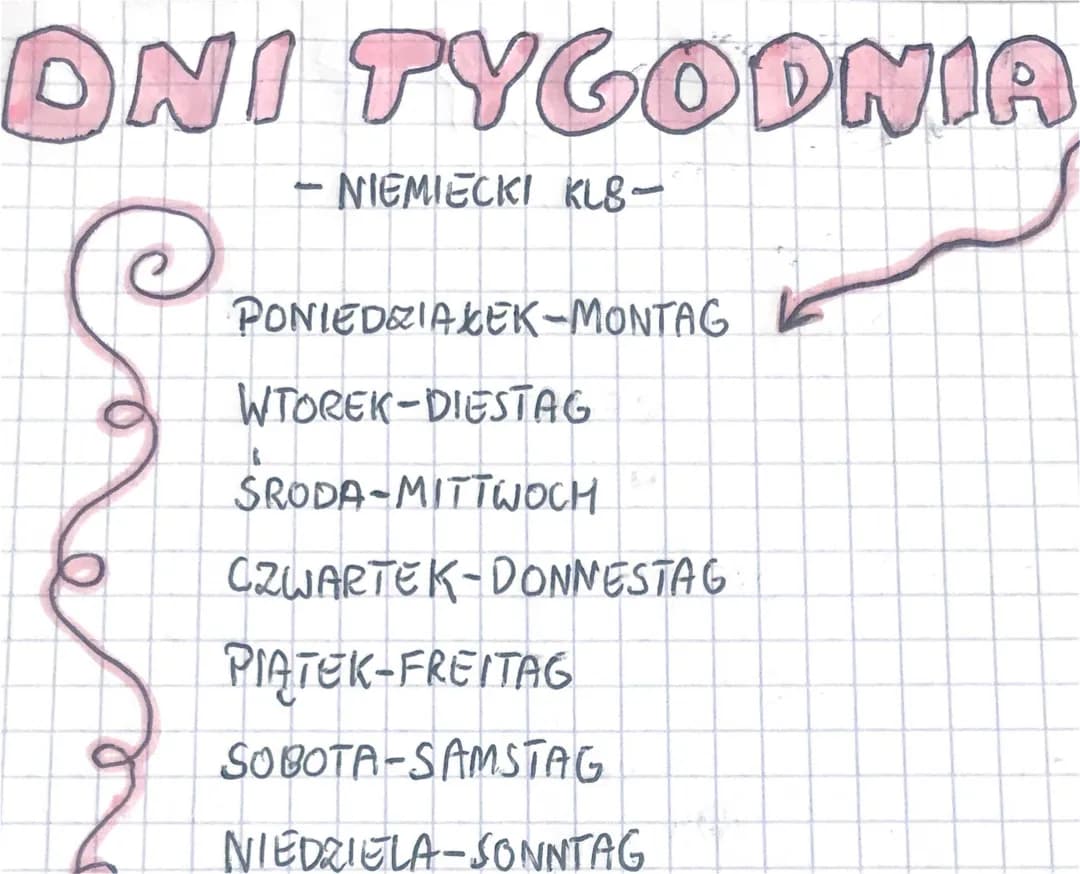 DNI TYGODNIA
- NIEMIECKI KL8-
PONIEDZIAŁEK-MONTAG
WTOREK-DIESTAG
ŚRODA-MITTWOCH
CZWARTEK-DONNESTAG
PIĄTEK-FREITAG
SOBOTA-SAMSTAG
NIEDZIELA-SONNTAG